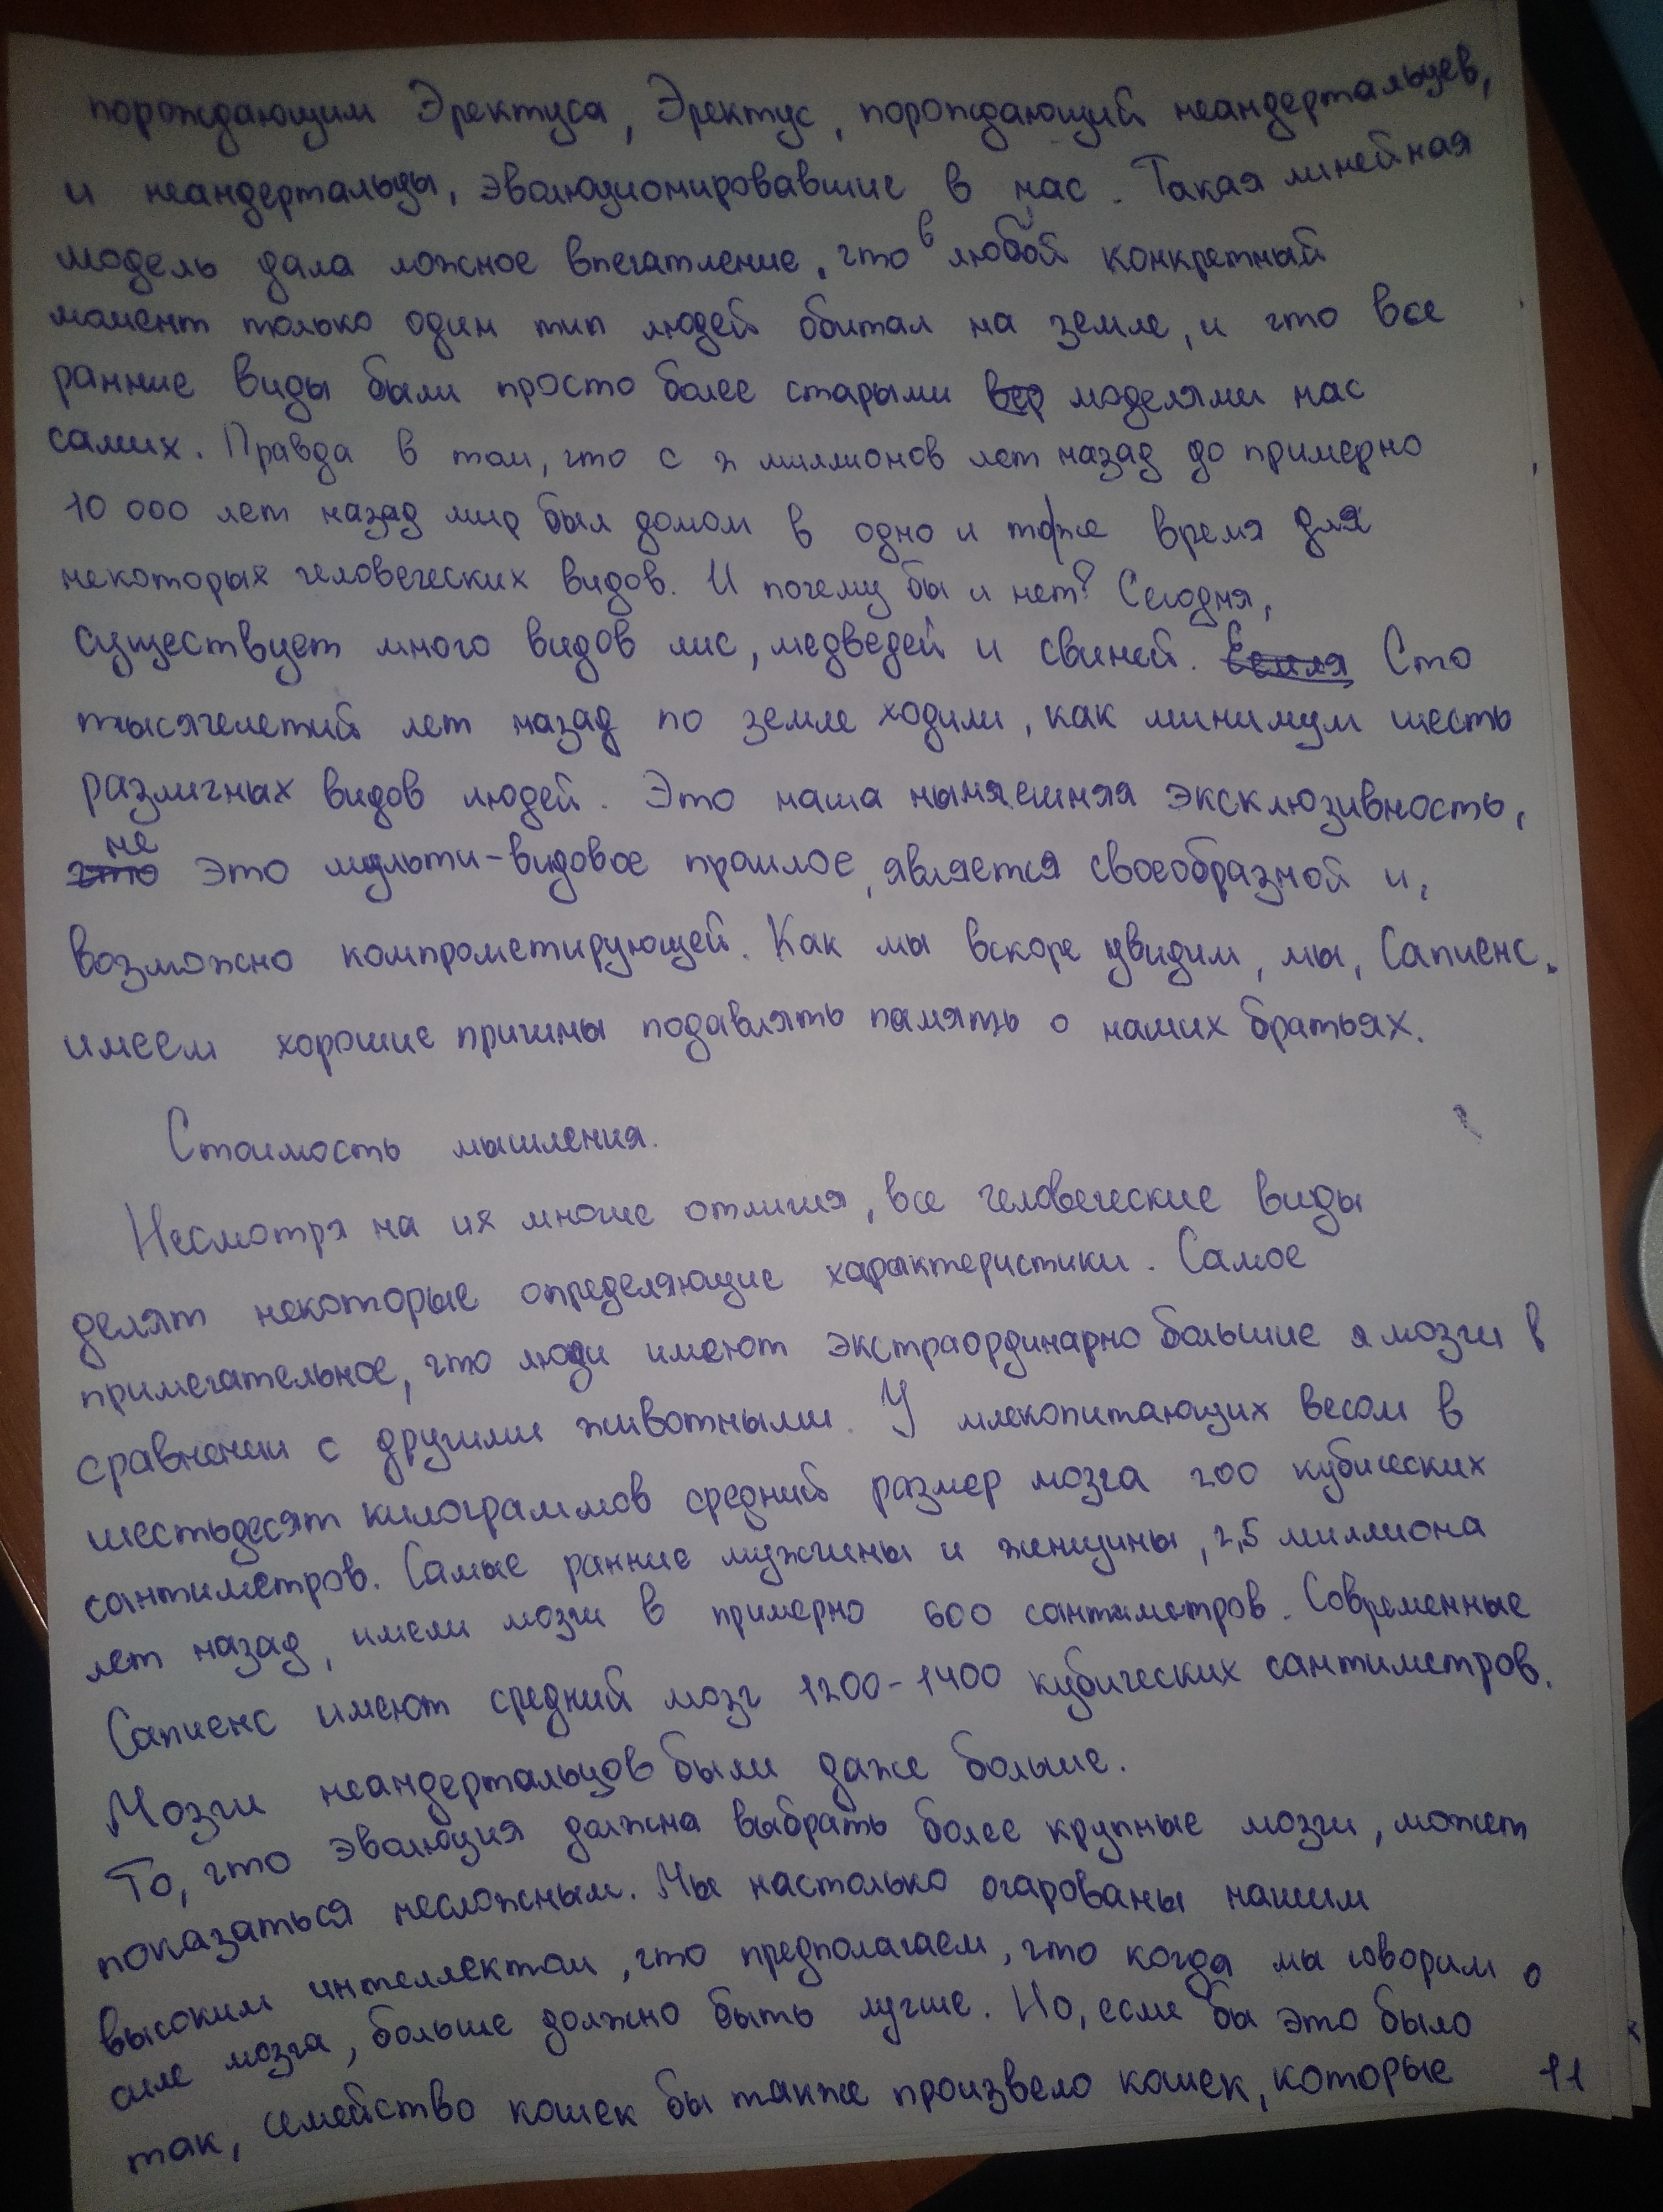 порождающим Эректуса, Эректус, порождающий неандертальцев,
и неандертальцы, эволюционировавшие в нас. Такая линейная
модель дала ложное впечатление, что в любой конкретный
момент только один тип людей обитал на земле, и что все
ранние виды были просто более старыми моделями нас
самих. Правда в том, что с 2 миллионов лет назад до примерно
10 000 лет назад мир был домом в одно и тоже время для
некоторых человеческих видов. И почему бы и нет? Сегодня,
существует много видов лис, медведей и свиней. Сто
тысячелетий лет назад по земле ходили, как минимум шесть
различных видов людей. Это наша ныняешняя эксклюзивность,
не это мульти-видовое прошлое, является своеобразной и,
возможно компрометирующей. Как мы вскоре увидим, мы, Сапиенс,
имеем хорошие причины подавлять память о наших братьях.
Стоимость мышления.
Несмотря на их многие отличия, все человеческие виды
делят некоторые определяющие характеристики. Самое
примечательное, что люди имеют экстраординарно большие я мозги в
сравнении с другими животными. У млекопитающих весом в
шестьдесят килограммов средний размер мозга 200 кубических
сантиметров. Самые ранние мужчины и женщины, 2,5 миллиона
лет назад, имели мозги в примерно 600 сантиметров. Современные
Сапиенс имеют средний мозг 1200-1400 кубических сантиметров.
Мозги неандертальцов были даже больше.
То, что эволюция должна выбрать более крупные мозги, может
показаться несложным. Мы настолько очарованы нашим
высоким интеллектом, что предполагаем, что когда мы говорим о
силе мозга, больше должно быть лучше. Но, если бы это было
так, семейство кошек бы также произвело кошек, которые
11